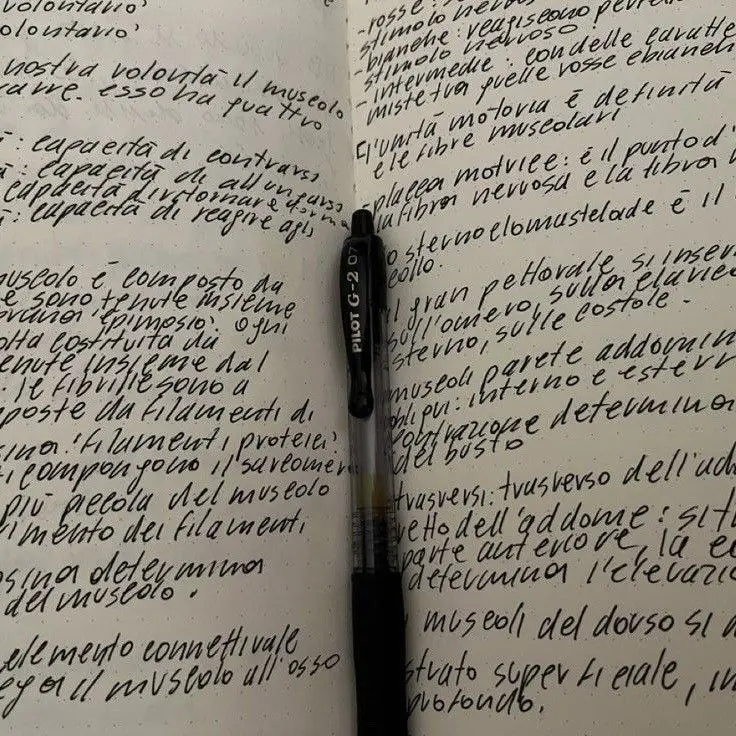 volontario
olontario
nostra volontà il muscolo
esso ha quattro
: capacità di contrarsi
: capacità di allungarsi
capacità di ritornare
: capacità di reagire agli
muscolo è composto da
e sono tenute insieme
epimosio. Ogni
costituita da
enute insieme dal
. le fibrille sono a
poste da filamenti di
sina. filamenti proteici
compongono il sarcomer
più piccola del muscolo
rimento dei filamenti
osina determina
del muscolo.
elemento connettivale
lega il muscolo all'osso
PILOT G-2 07
- rosse:
stimolo nervoso
- bianche: reagiscono per
stimolo nervoso
- intermedie: con delle caratte
miste tra quelle rosse e bianch
L'unità motoria è definita
e le fibre muscolari
placca motrice: è il punto d'
la fibra nervosa e la fibra
o sternocleomastelade è il
collo.
il gran pettorale si inser
sull'omero, sulla clavic
sterno, sulle costole.
muscoli parete addomin
obliqui: interno e estern
contrazione determina
del busto
trasversi: trasverso dell'ad
retto dell'addome: si t
parte anteriore, la c
determina l'elevazio
muscoli del dorso si d
strato superficiale, in
profondo.